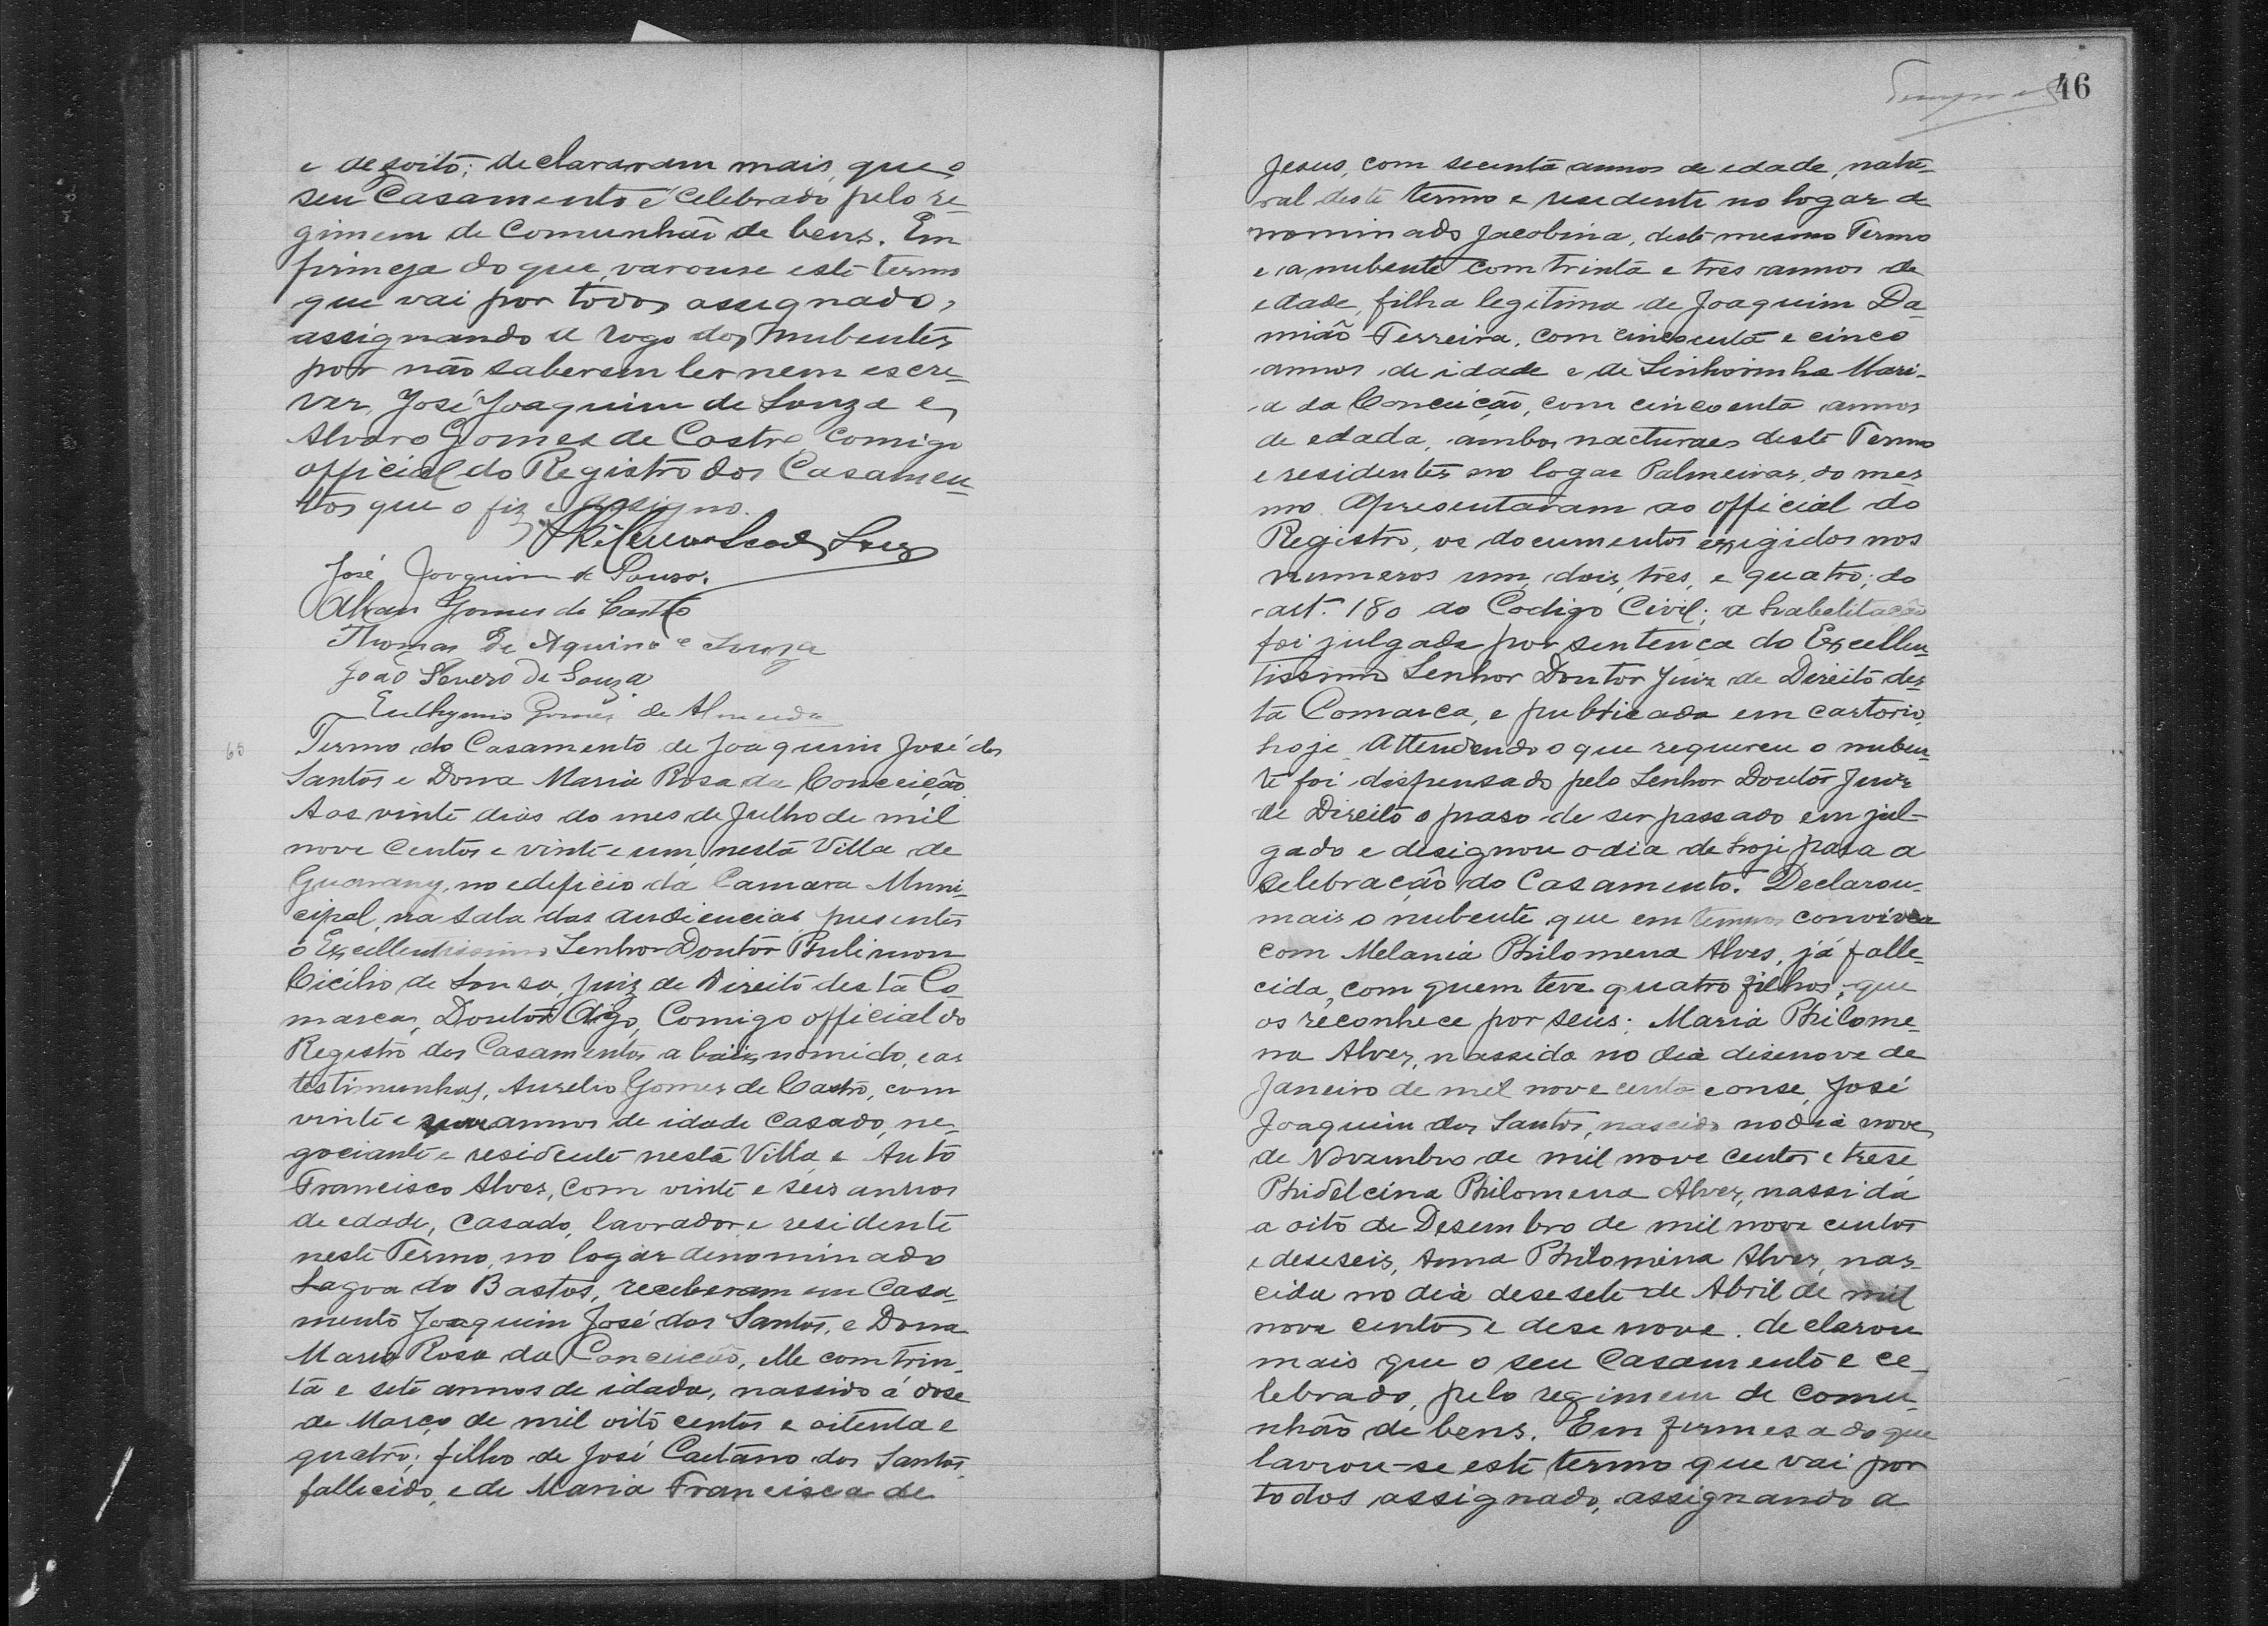 e desoito; declararam mais, que o
seu Casamento é celebrado pelo re-
gimem de Comunhão de bens. Em
firmeza do que, varouse este termo
que vai por todos assignado,
assignando a rogo dos nubentes
por não saberem ler nem escre-
ver, José Joaquim de Souza e
Alvaro Gomes de Castro comigo
official do Registro dos Casamen-
tos que o fiz e assigno.
José Joaquim de Souza.
Alvaro Gomes de Castro
Thomas de Aquino e Souza
João Severo de Souza
Euthymio Gomes de Almeida
65 Termo do Casamento de Joaquim José dos
Santos e Dona Maria Rosa da Conceição.
Aos vinte dias do mes de Julho de mil
nove centos e vinte e um, nesta Villa de
Guarany, no edeficio da Camara Muni-
cipal, na sala das audiencias presentes
o Excellentissimo Senhor Doutor Philimon
Cicilio de Sousa, juiz de Direito desta Co-
marca, Doutor Digo, Comigo official do
Registro dos Casamentos a baixo nomido, e as
testimunhas, Aurelio Gomes de Castro, com
vinte e annos de idade casado, ne-
gociante e residente nesta Villa e Anto
Francisco Alves, com vinte e seis annos
de edade, casado, lavrador e residente
neste Termo, no logar denominado
Lagoa do Bastos, receberam em Casa-
mento Joaquim José dos Santos, e Dona
Maria Rosa da Conceicão, elle com trin-
ta e sete annos de idade, nassido á dose
de Março de mil oito centos e oitenta e
quatro; filho de José Caetano dos Santos,
fallecido, e de Maria Francisca de
46
Jesus, com secenta annos de edade, natu-
ral deste termo e residente no logar de
nominado Jacobina, deste mesmo Termo
e a nubente com trinta e tres annos de
edade, filha legitima de Joaquim Da-
mião Ferreira, com cincoenta e cinco
annos de idade e de Sinhorinha Mari-
a da Conceição, com cincoenta annos
de edada, ambos nacturaes deste Termo
e residentes no logar Palmeiras, do mes-
mo. Apresentaram ao official do
Registro, os documentos exigidos nos
numeros um, dois, tres, e quatro; do
art. 180 do Codigo Civil; a habelitacão
foi julgada por sentença do Excellen-
tissimo Senhor Doutor Juiz de Direito des-
ta Comarca, e publicada em cartorio,
hoje. Attendendo o que requereu o nuben-
te foi dispensado pelo Senhor Doutor Juiz
de Direito o praso de ser passado em jul-
gado e designou o dia de hoje para a
selebracão do Casamento. Declarou-
mais o nubente que em tempos conviveu
com Melania Philomena Alves, já falle-
cida, com quem teve quatro filhos; que
os reconhece por seus; Maria Philome-
na Alves, nassida no dia disenove de
Janeiro de mil nove cento e onse, José
Joaquim dos Santos, nascido no dia nove
de Novembro de mil nove centos e trese
Phidelcina Philomena Alves, nassida
a oito de Desembro de mil nove centos
e deseseis, Anna Philomina Alves, nas-
cida no dia desesete de Abril de mil
nove centos e dese nove. declarou
mais que o seu Casamento e ce-
lebrado, pelo regimem de comu-
nhão de bens. Em firmesa do que
lavrou-se este termo que vai por
todos assignado, assignando a